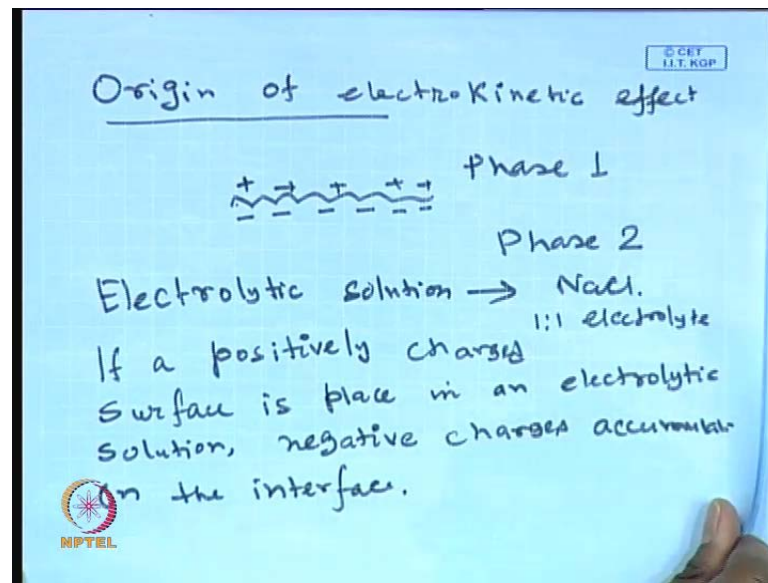 © CET
I.I.T. KGP
Origin of electrokinetic effect
+ + + + + Phase 1
− − − − − −
Phase 2
Electrolytic solution → NaCl.
1:1 electrolyte
If a positively charged
surface is place in an electrolytic
solution, negative charges accumulate
on the interface.
NPTEL